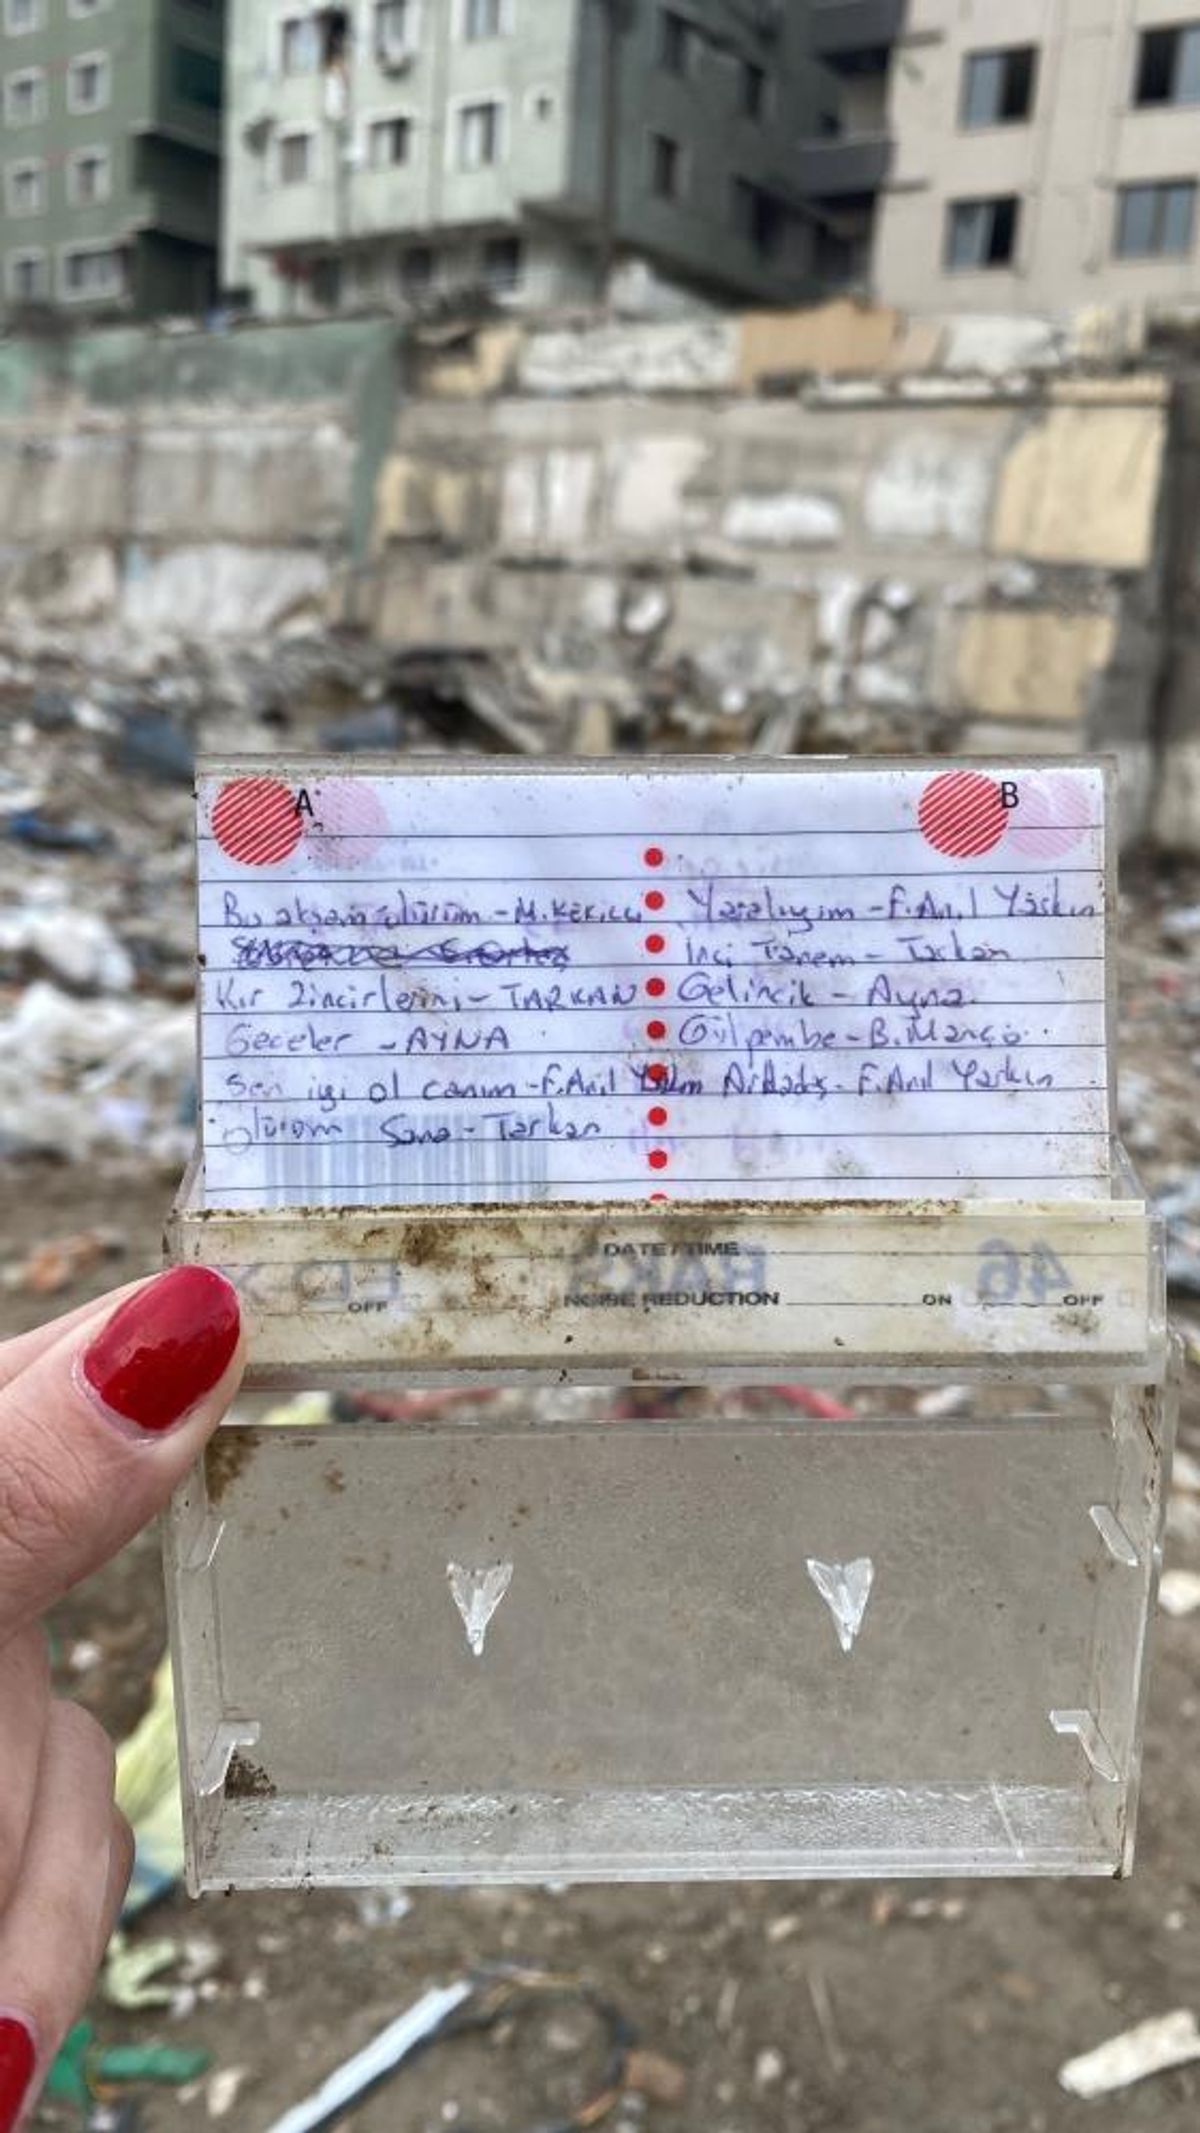 A
Bu akşam ölürüm - M.KEKİLLİ
Kır Zincirlerini - TARKAN
Geceler - AYNA
Sen iyi ol canım - F.Anıl
ölürüm Sana - Tarkan
B
Yaralıyım - F.Anıl Yaşkın
İnci Tanem - Tarkan
Gelincik - Ayna
Gülpembe - B.Manço
Arkadaş - F.Anıl Yaşkın
DATE / TIME
OFF NOISE REDUCTION ON OFF
RAKS 46